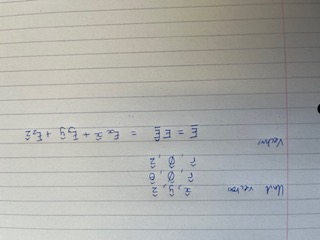 Unit vectors x̂, ŷ, ẑ
r̂, θ̂, φ̂
r̂, φ̂, ẑ
Vectors
E̅ = E Ê = Eₓ x̂ + E_y ŷ + E_z ẑ